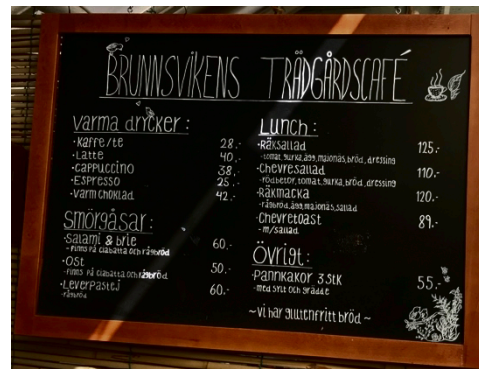 BRUNNSVIKENS TRÄDGÅRDSCAFÉ
varma drycker:
·Kaffe/te 28.-
·Latte 40.-
·cappuccino 38.-
·Espresso 25.-
·varm choklad 42.-
Smörgåsar:
·Salami & brie 60.-
-finns på ciabatta och rågbröd
·Ost 50.-
-finns på ciabatta och rågbröd
·Leverpastej 60.-
-rågbröd
Lunch:
·Räksallad 125.-
-tomat, gurka, ägg, majonäs, bröd, dressing
·Chevresallad 110.-
-rödbetor, tomat, gurka, bröd, dressing
·Räkmacka 120.-
-rågbröd, ägg, majonäs, sallad
·Chevretoast 89.-
-m/sallad
Övrigt:
·Pannkakor 3.stk 55.-
-med sylt och grädde
~vi har glutenfritt bröd~